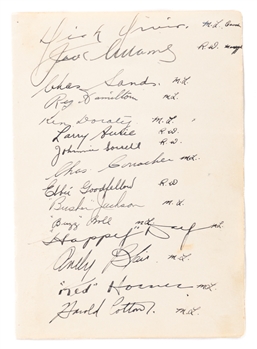 Dick Irvin. M.L.
Jack Adams R.W.
Chas Sands. M.L.
Reg Hamilton M.L.
Ken Doraty M.L.
Larry Aurie R.W.
Johnnie Sorrell R.W.
Chas. Conacher M.L.
Ebbie Goodfellow R.W
Busher Jackson M.L.
"Buzz" Boll M.L.
"Happy" Day M.L.
Andy Blair M.L.
"Red" Horner M.L.
Harold Cotton. M.L.